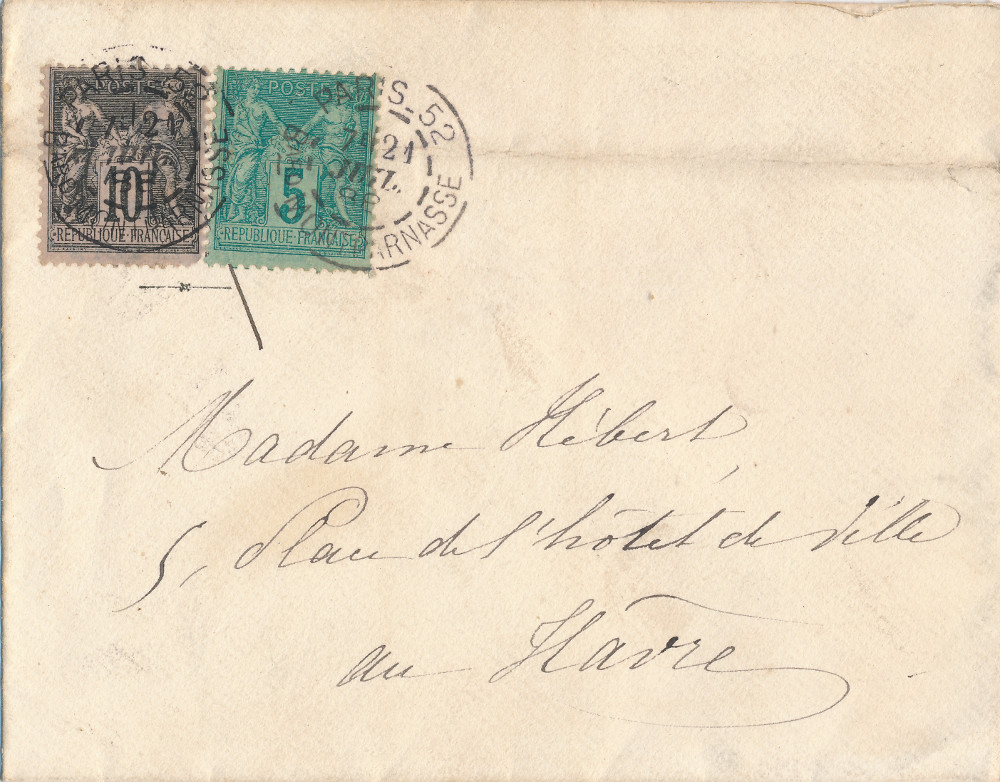 POSTE
10
REPUBLIQUE FRANÇAISE
POSTE
5
REPUBLIQUE FRANÇAISE
PARIS. 52
21
JUIL.
Madame Hébert,
5, Place de l'hôtel de Ville
au Hâvre